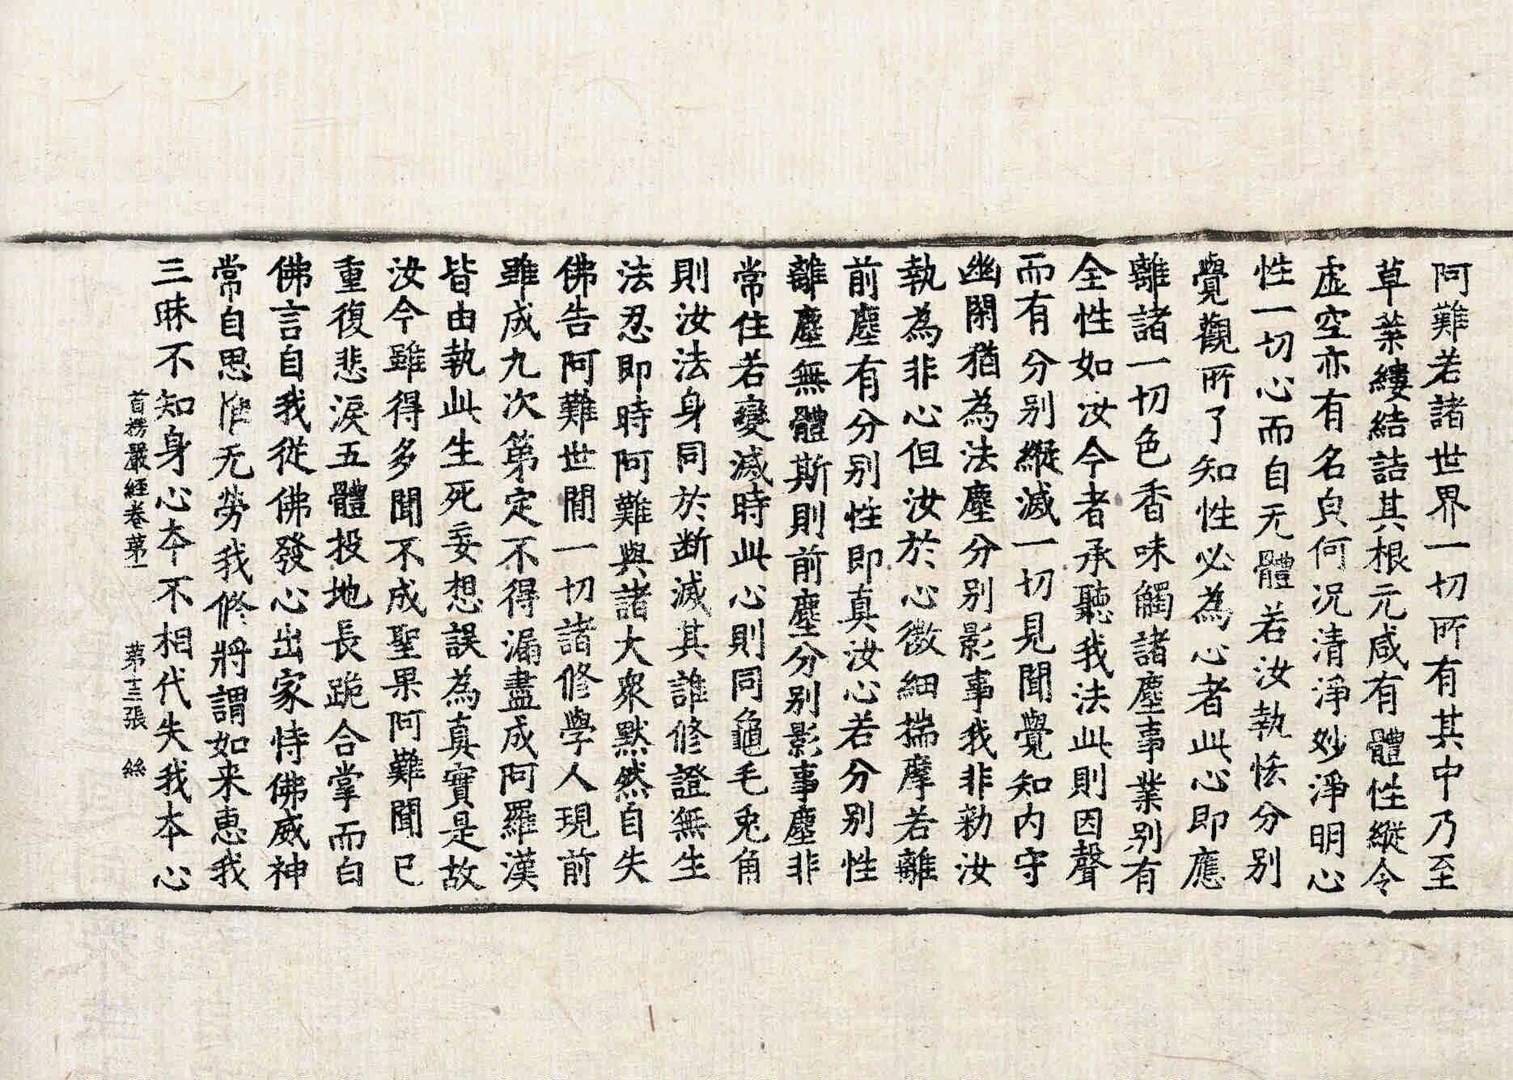 阿難若諸世界一切所有其中乃至
草葉縷結詰其根元咸有體性縱令
虛空亦有名皃何况清淨妙淨明心
性一切心而自无體若汝執恡分別
覺觀所了知性必為心者此心即應
離諸一切色香味觸諸塵事業別有
全性如汝今者承聽我法此則因聲
而有分別縱滅一切見聞覺知內守
幽閑猶為法塵分別影事我非勑汝
執為非心但汝於心微細揣摩若離
前塵有分別性即真汝心若分別性
離塵無體斯則前塵分別影事塵非
常住若變滅時此心則同龜毛兎角
則汝法身同於断滅其誰修證無生
法忍即時阿難與諸大衆默然自失
佛告阿難世間一切諸修學人現前
雖成九次第定不得漏盡成阿羅漢
皆由執此生死妄想誤為真實是故
汝今雖得多聞不成聖果阿難聞已
重復悲淚五體投地長跪合掌而白
佛言自我從佛發心出家恃佛威神
常自思惟无勞我修將謂如来惠我
三昧不知身心夲不相代失我夲心
首楞嚴經卷苐一 苐十三張 絲